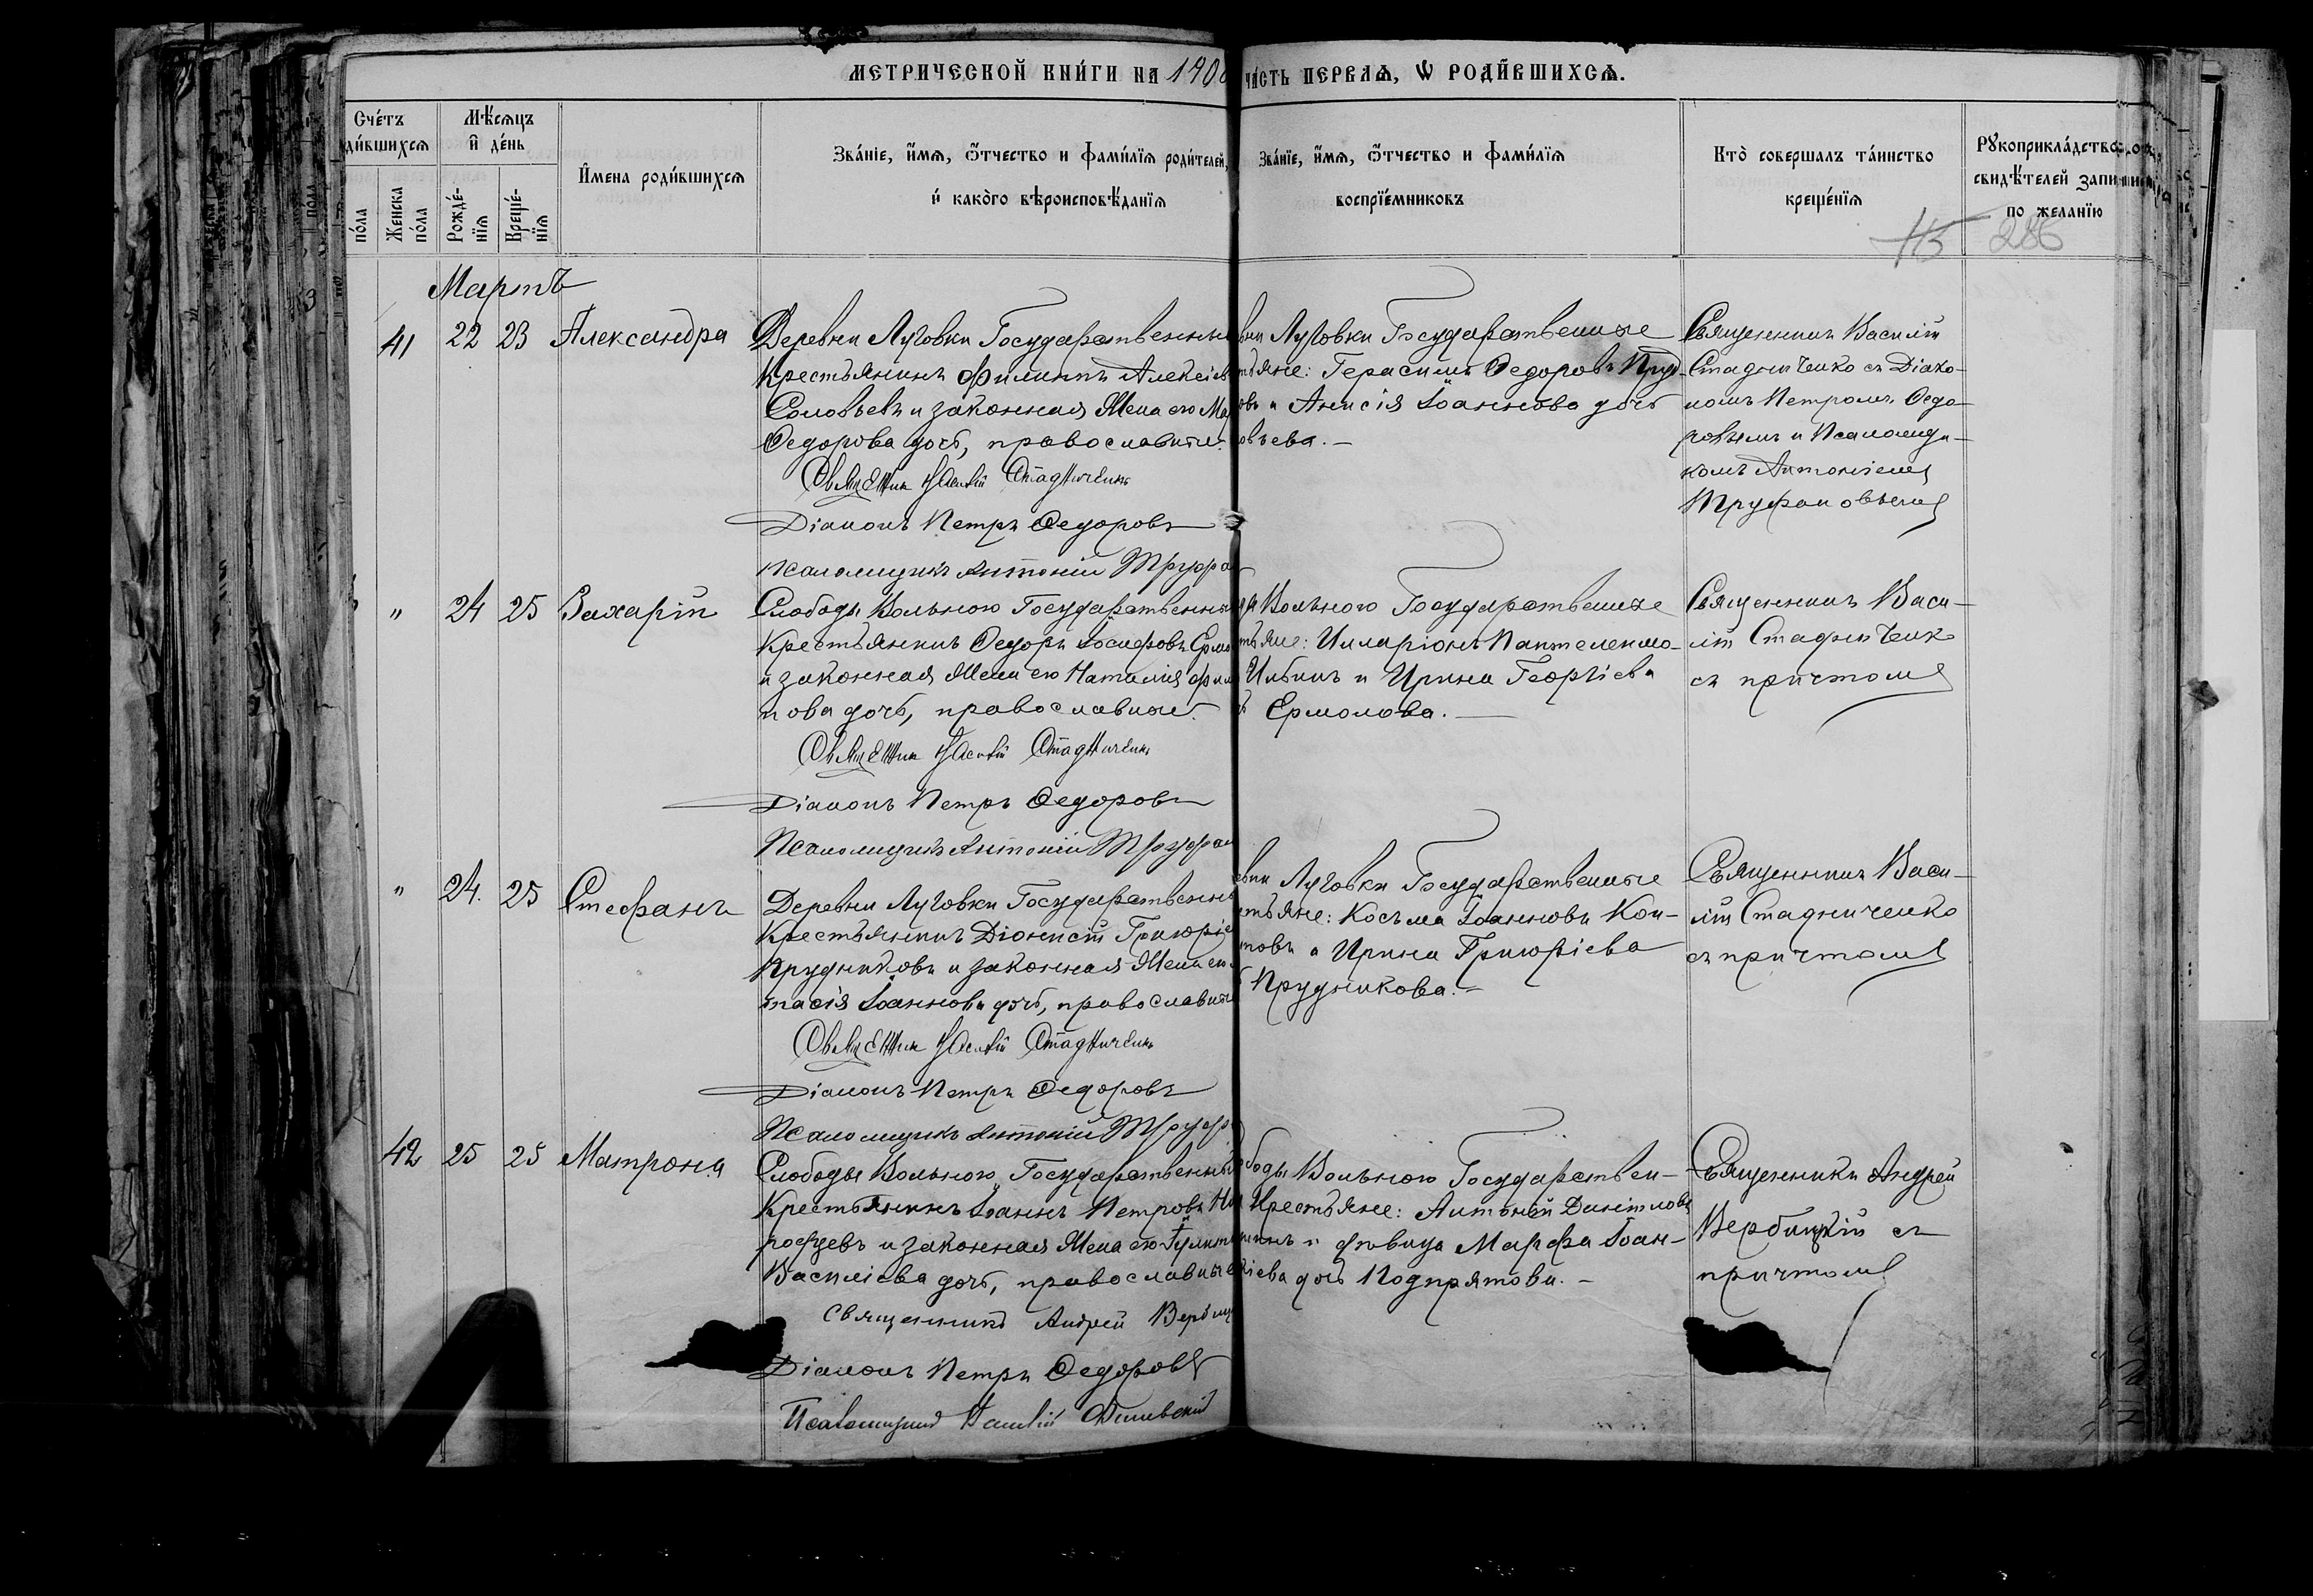 МЕТРИЧЕСКОЙ КНИ́ГИ НА 190
ЧА́СТЬ ПЕРВАѦ, Ѡ РОДИ́ВШИХСѦ.
Сче́тъ
ди́вшихсѧ
Мѣ́сѧцъ
и҆ де́нь
И҆мена роди́вшихсѧ
Зва́нїе, и҆́мѧ, ѻ҆́тчество и фами́лїѧ роди́телей,
и҆ како́го вѣроисповѣ́данїѧ
Зва́нїе, и҆́мѧ, ѻ҆́тчество и фами́лїѧ
воспрїе́мниковъ
Кто̀ соверша́лъ та́инство
креще́нїѧ
Рꙋкоприкла́дство
свидѣ́телей запи
по жела́нїю
по́ла
Женска
по́ла
Рожде́-
нїѧ
Креще́-
нїѧ
115 286
Мартъ
41 22 23 Александра
Деревни Луговки Государственны
Крестьянинъ Филиппъ Алексіев
Соловьевъ и законная Жена его Ма
Ѳедорова дочь, православные.
Священник Василій Стадниченк
Діаконъ Петръ Ѳедоровъ
Псаломщикъ Антоній Труфа
вни Луговки Государственные
тьяне: Герасимъ Ѳедоровъ Пруд-
овъ и Анисія Іоаннова дочь
овьева. —
Священникъ Василій
Стадниченко съ Діако-
номъ Петромъ Ѳедо-
ровымъ и Псаломщи-
комъ Антоніемъ
Труфановымъ
" 24 25 Захарій
Слободы Вольного Государственны
Крестьянинъ Ѳедоръ Іосифовъ Ермо
и законная Жена его Наталія Фили
пова дочь, православные.
Священник Василій Стадниченк
Діаконъ Петръ Ѳедоровъ
Псаломщикъ Антоній Труфан
Вольного Государственные
тьяне: Илларіонъ Пантелеимо-
Цыбинъ и Ирина Георгіева
Ермолова. —
Священникъ Васи-
лій Стадниченко
съ причтомъ
" 24. 25 Стефанъ
Деревни Луговки Государственны
Крестьянинъ Діонисій Григоріе
Прудниковъ и законная Жена его
тасія Іоаннова дочь, православные
Священник Василій Стадниченк
Діаконъ Петръ Ѳедоровъ
Псаломщикъ Антоній Труфа
вни Луговки Государственные
стьяне: Косьма Іоанновъ Кон-
новъ и Ирина Григоріева
Прудникова. —
Священникъ Васи-
лій Стадниченко
съ причтомъ
42 25 25 Матрона
Слободы Вольного Государственный
Крестьянинъ Іоаннъ Петровъ Ни
рофуевъ и законная Жена его
Василіева дочь, православные
Священникъ Андрей Вербиц
Діаконъ Петръ Ѳедоровъ
Псаломщикъ
боды Вольного Государствен-
Крестьяне: Антоній Даніиловъ
и дѣвица Марѳа Іоан-
дочь Подпрятова. —
Священникъ Андрей
Вербицкій съ
причтомъ